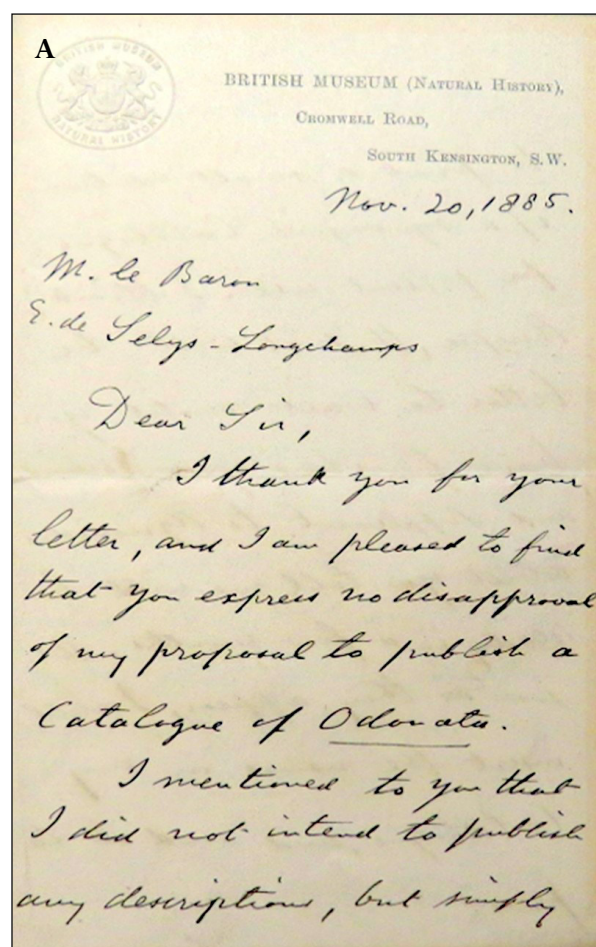 A
BRITISH MUSEUM
NATURAL HISTORY
BRITISH MUSEUM (NATURAL HISTORY),
CROMWELL ROAD,
SOUTH KENSINGTON, S.W.
Nov. 20, 1885.
M. le Baron
E. de Selys-Longchamps
Dear Sir,
I thank you for your
letter, and I am pleased to find
that you express no disapproval
of my proposal to publish a
Catalogue of Odonata.
I mentioned to you that
I did not intend to publish
any descriptions, but simply